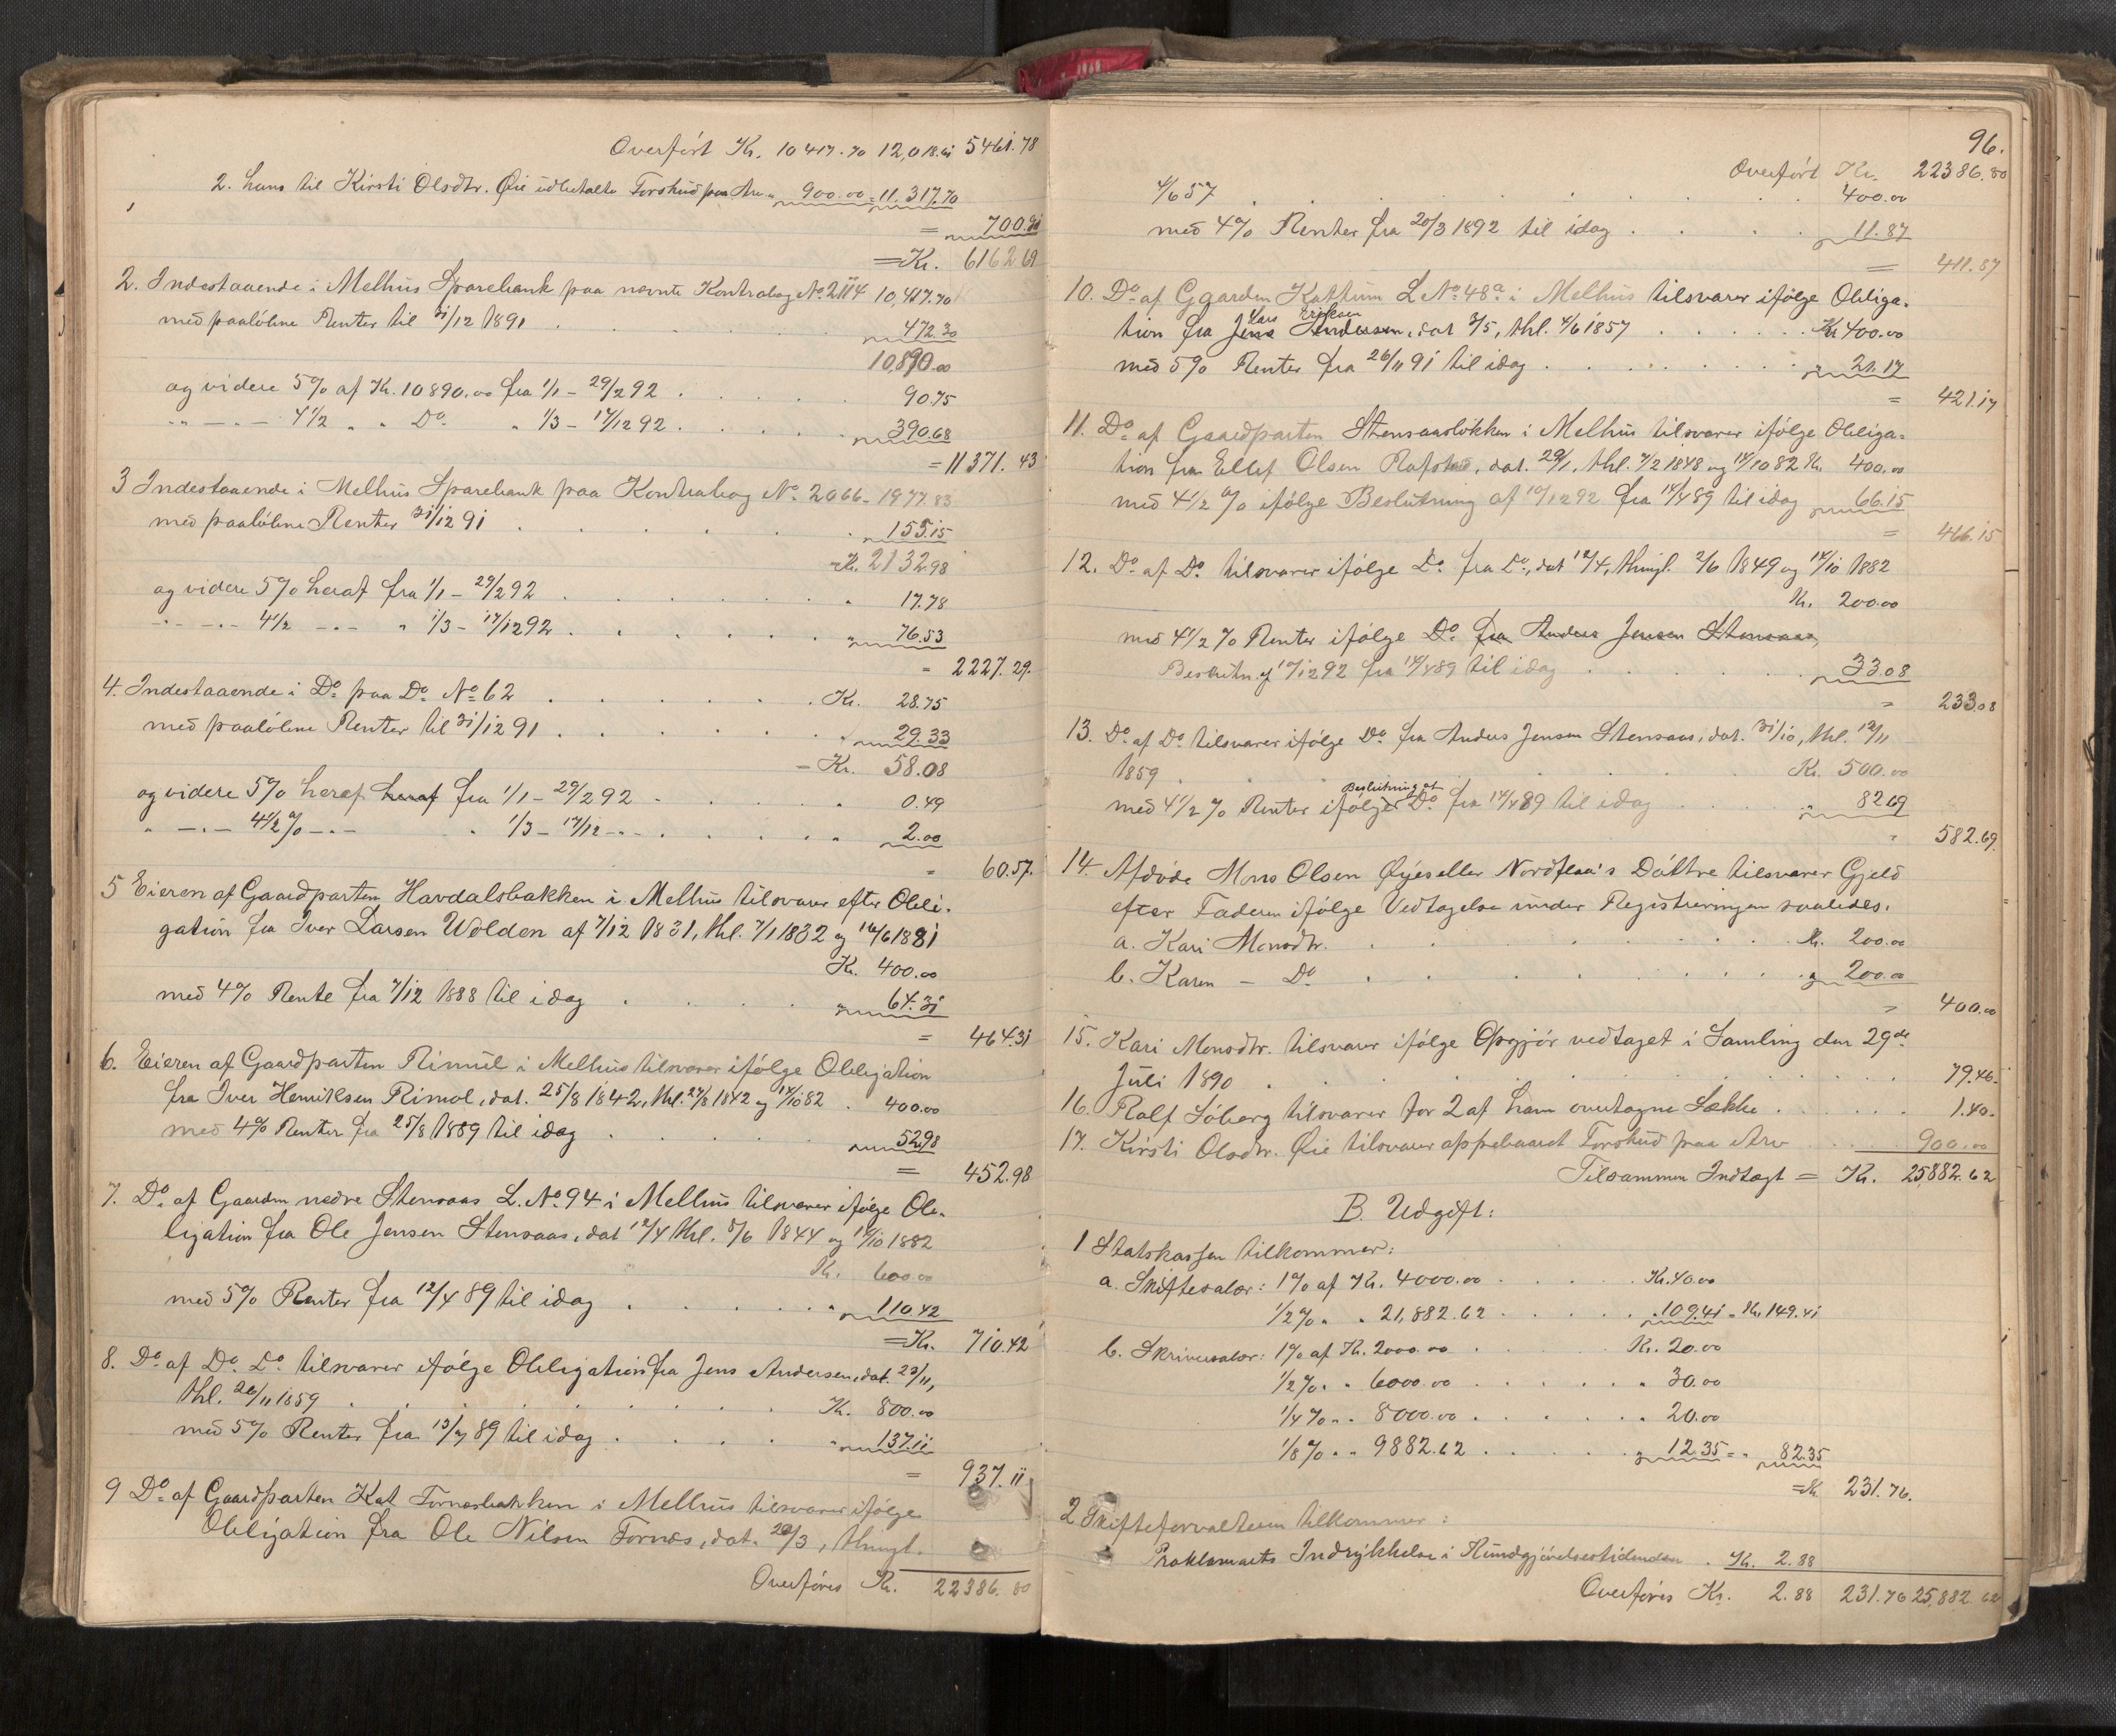 Overført Kr. 10417.70 12,018.61 5461.78
2. hans til Kirsti Olsdtr. Øie udbetalte Forskud paa Arv „ 900.00 = 11.317.70
= 700.91
= Kr. 6162.69
2. Indestaaende i Melhus Sparebank paa nævnte Kontrabog No. 2114 10,417.70
med paaløbne Renter til 31/12 1891 . . . 472.30
10,890.00
og videre 5% af Kr. 10890.00 fra 1/1 - 29/2 92 . . . 90.75
„ - „ - 4 1/2 „ „ Do. „ 1/3 - 17/12 92 . . . 390.68
= 11371.43
3 Indestaaende i Melhus Sparebank paa Kontrabog No. 2066 - 1977.83
med paaløbne Renter 31/12 91 . . . 155.15
Kr. 2132.98
og videre 5% heraf fra 1/1 - 29/2 92 . . . 17.78
- „ - „ - 4 1/2 - „ - „ 1/3 - 17/12 92 . . . „ 76.53
= 2227.29.
4. Indestaaende i Do. paa Do. No. 62 . . . Kr. 28.75
med paaløbne Renter til 31/12 91 . . . „ 29.33
= Kr. 58.08
og videre 5% heraf heraf fra 1/1 - 29/2 92 - . . . 0.49
„ - „ - 4 1/2 % - „ - „ 1/3 - 17/12 - „ - . . . „ 2.00
= 60.57.
5 Eieren af Gaardparten Havdalsbakken i Melhus tilsvarer efter Obli-
gation fra Iver Larsen Wolden af 7/12 1831, thl. 7/1 1832 og 16/6 1881
Kr. 400.00
med 4% Rente fra 7/12 1888 til idag . . . „ 64.31
= 464.31
6. Eieren af Gaardparten Rimul i Melhus tilsvarer ifølge Obligation
fra Iver Henriksen Rimol, dat. 25/8 1842, thl. 27/8 1842 og 14/10 82 . 400.00
med 4% Renter fra 25/8 1889 til idag . . . 52.98
= 452.98
7. Do. af Gaarden nedre Stensaas L. No. 94 i Melhus tilsvarer ifølge Ob-
ligation fra Ole Jensen Stensaas, dat 12/4 thl. 5/6 1844 og 14/10 1882
Kr. 600.00
med 5% Renter fra 12/4 89 til idag . . . „ 110.42
= Kr. 710.42
8. Do. af Do. Do. tilsvarer ifølge Obligation fra Jens Andersen, dat. 23/11,
thl. 26/11 1859 . . . Kr. 800.00
med 5% Renter fra 13/7 89 til idag . . . „ 137.11
= 937.11
9 Do. af Gaardparten Kat Fornesbakken i Melhus tilsvarer ifølge
Obligation fra Ole Nilsen Fornes, dat. 20/3, thingl.
Overføres Kr. 22386.80
96.
Overført Kr. 22386.80
4/6 57 . . . 400.00
med 4% Renter fra 20/3 1892 til idag . . . „ 11.87
= 411.87
10. Do. af Gaarden Kattum L No. 48a i Melhus tilsvarer ifølge Obliga-
Lars Eriksen
tion fra Jens Andersen, dat 3/5, thl. 4/6 1857 . . . Kr 400.00
med 5% Renter fra 26/11 91 til idag . . . „ 21.17
= 421.17
11. Do. af Gaardparten Stensaasløkken i Melhus tilsvarer ifølge Obliga-
tion fra Ellef Olsen Rafstad, dat. 29/1, thl. 7/2 1848 og 14/10 82 Kr. 400.00
med 4 1/2 % ifølge Beslutning af 10/12 92 fra 14/4 89 til idag „ 66.15
= 466.15
12. Do. af Do. tilsvarer ifølge Do. fra Do., dat 12/4, thingl. 2/6 1849 og 14/10 1882
Kr. 200.00
med 4 1/2 % Renter ifølge Do. fra Anders Jensen Stensaas,
Beslutn. af 10/12 92 fra 14/4 89 til idag . . . „ 33.08
= 233.08
13. Do. af Do. tilsvarer ifølge Do. fra Anders Jensen Stensaas, dat. 31/10, thl. 12/11
1859 . . . Kr. 500.00
Beslutning af
med 4 1/2 % Renter ifølge Do. fra 14/4 89 til idag . . . „ 82.69
„ 582.69.
14. Afdøde Mons Olsen Øyes eller Nordflaa's Døttre tilsvarer Gjeld
efter Faderen ifølge Vedtagelse under Registreringen saaledes.
a. Kari Monsdtr. . . . Kr. 200.00
b. Karen - Do. . . . „ 200.00
= 400.00
15. Kari Monsdtr. tilsvarer ifølge Opgjør vedtaget i Samling den 29de
Juli 1890 . . . 79.46.
16. Ralf Søberg tilsvarer for 2 af ham overtagne Sække . . . 1.40.
17. Kirsti Olsdtr. Øie tilsvarer oppebaaret Forskud paa Arv . . . 900.00
Tilsammen Indtægt = Kr. 25,882.62
B. Udgift:
1 Statskassen tilkommer:
a. Skiftesalær: 1% af Kr. 4000.00 . . . Kr. 40.00
1/2% „ „ 21,882.62 . . . „ 109.41 = Kr. 149.41
b. Skriversalær: 1% af Kr. 2000.00 . . . Kr. 20.00
1/2% „ „ 6000.00 . . . „ 30.00
1/4% „ „ 8000.00 . . . „ 20.00
1/8% „ „ 9882.62 . . . „ 12.35 = „ 82.35
= Kr. 231.76.
2 Skifteforvalteren tilkommer:
Proklamaets Indrykkelse i Kundgjørelsestidenden . Kr. 2.88
Overføres Kr. 2.88 231.76 25,882.62